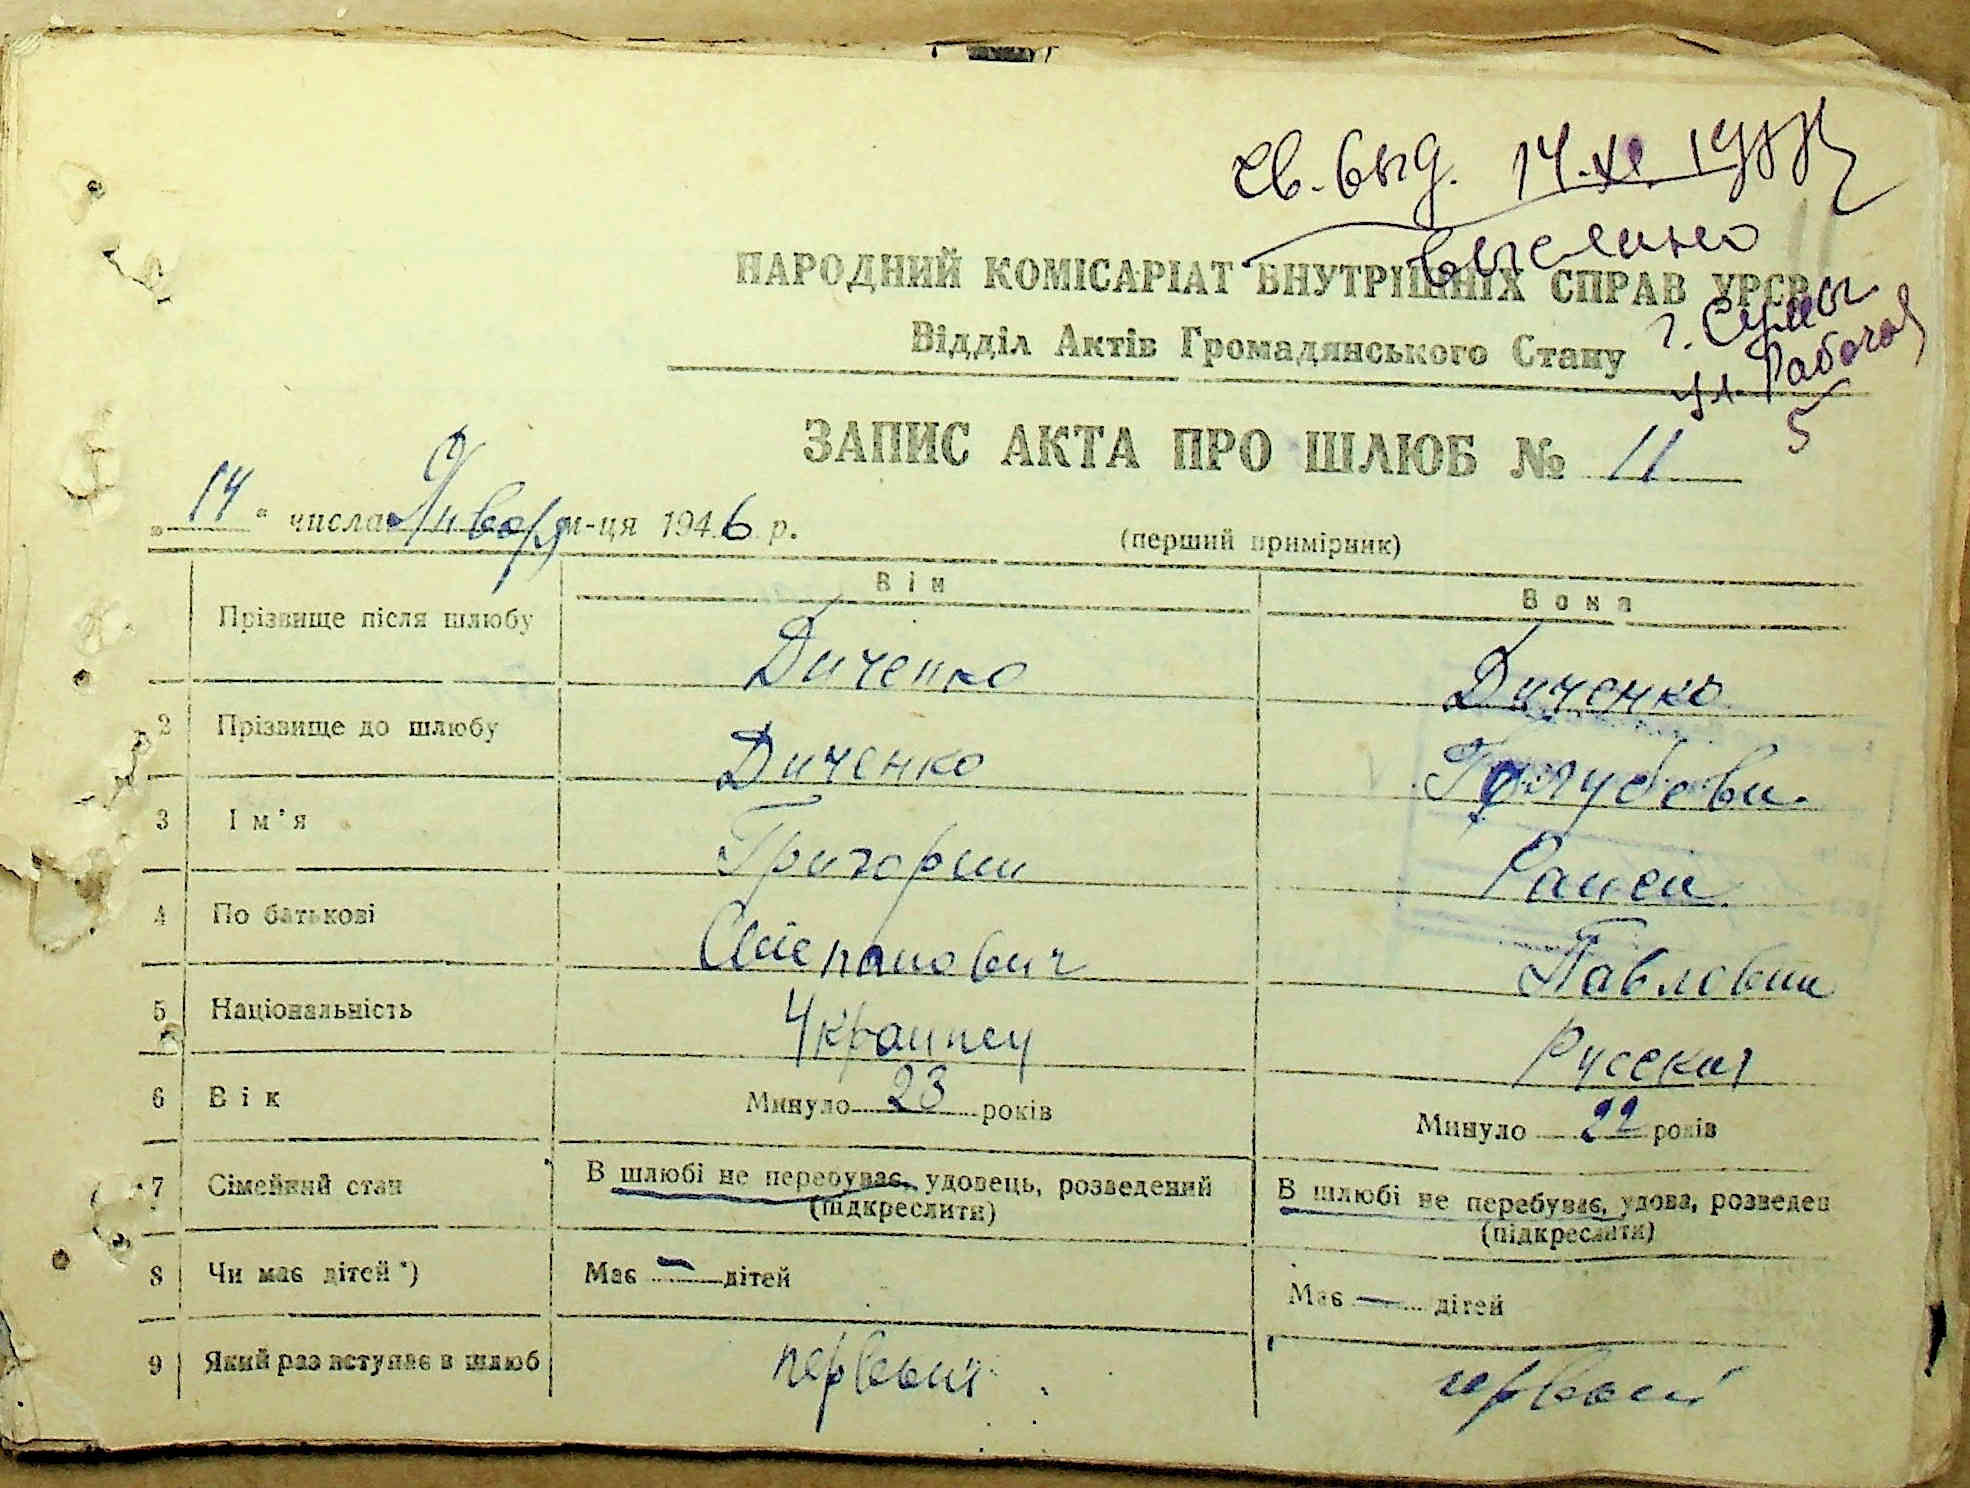 св. выд. 14.XI.
выслано
НАРОДНИЙ КОМІСАРІАТ ВНУТРІШНІХ СПРАВ УРСР
г. Сумы
Відділ Актів Громадянського Стану
ул. Рабочая
5
ЗАПИС АКТА ПРО ШЛЮБ № 11
„14“ числа Января м-ця 1946 р.
(перший примірник)
Він Вона
Прізвище після шлюбу Диченко Диченко
2 Прізвище до шлюбу Диченко Голубева
3 Ім'я Григорий Раиса
4 По батькові Степанович Павловна
5 Національність Украинец Русская
6 Вік Минуло 23 років Минуло 22 років
7 Сімейний стан В шлюбі не перебуває, удовець, розведений В шлюбі не перебуває, удова, розведен
(підкреслити) (підкреслити)
8 Чи має дітей *) Має — дітей Має — дітей
9 Який раз вступає в шлюб первый первый